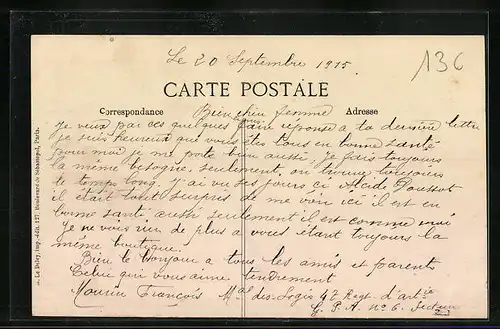 Le 20 Septembre 1915.
136
CARTE POSTALE
Correspondance
Adresse
Bien chère femme
Je veux par ces quelques faire réponse a ta dernière lettre
je suis heureux que vous êtes tous en bonne santé
pour moi je me porte bien aussi, je fais toujours
la même besogne, seulement, on trouve toujours
le temps long, j'ai vu ses jours ci Alcide Poussot
il était tout surpris de me voir ici il est en
bonne santé, aussi seulement il est comme moi
Je ne vous dis de plus a vous étant toujours la
même boutique.
Bien le bonjour a tous les amis et parents
Celui qui vous aime tendrement
Mourin François Mal des Logis 42 Regt d'artie
C. P. A. No 6. Secteur 2
Le Deley, Imp.-édit. 127, Boulevard de Sébastopol, Paris.